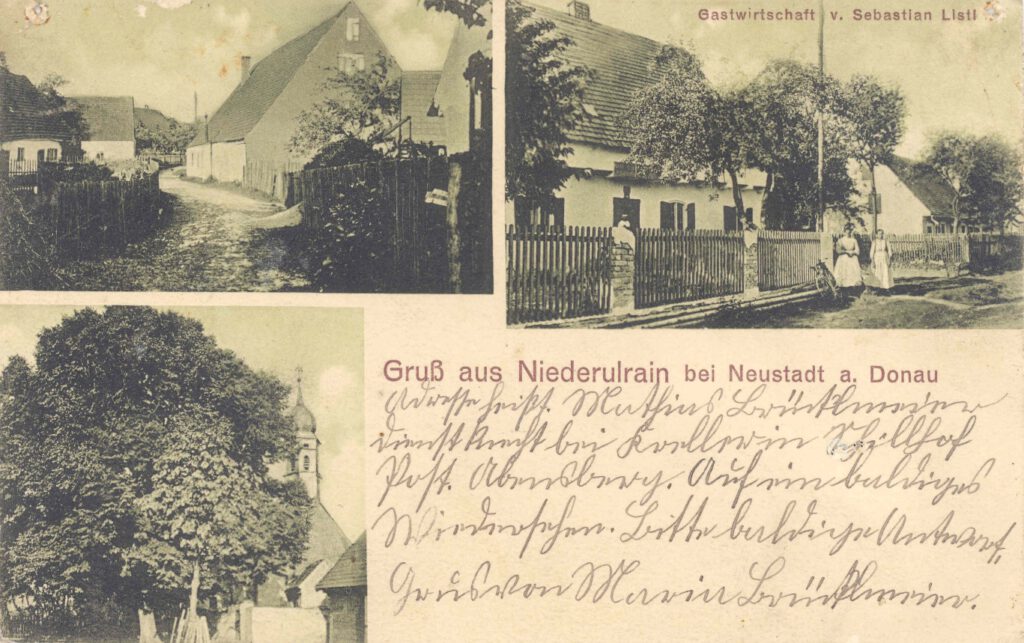 Gastwirtschaft v. Sebastian Listl
Gruß aus Niederulrain bei Neustadt a. Donau
Adresse heist. Mathias Brücklmeier
dienstknecht bei Kroller in Schillhof
Post. Abensberg. Auf ein baldiges
Wiedersehen. Bitte baldige Antwort,
Grus von Maria Brücklmeier.